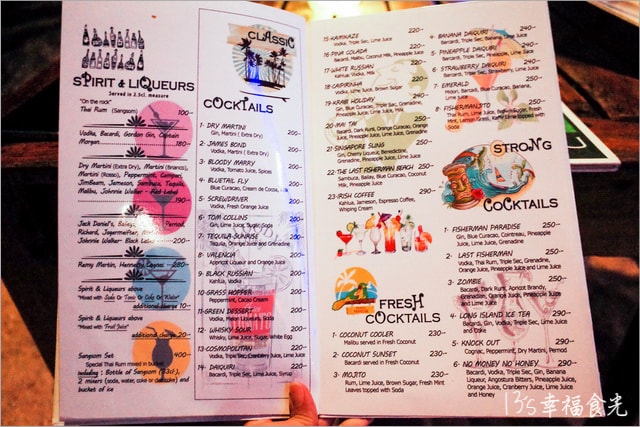 SPIRIT & LIQUEURS
Served in 2.3cl. measure
"On the rock"
Thai Rum (Sangsom) 100-
Vodka, Bacardi, Gordon Gin, Captain
Morgan 180-
Dry Martini (Extra Dry), Martini (Branco),
Martini (Rosso), Peppermint, Campari,
JimBeam, Jameson, Sambuca, Tequila,
Malibu, Johnnie Walker Red Label
190-
Jack Daniel's, Pernod
Richard, Jagermeister,
Johnnie-Walker Black Label 200-
Remy Martin, Cognac 280-
Spirit & Liqueurs above
"Mixed with Soda Or Tonic Or Coke Or Water"
additional charge 10-
Spirit & Liqueurs above
"Mixed with "Fruit Juice"
additional charge 20-
Sangsom Set 400-
Special Thai Rum mixed in bucket
including : Bottle of Sangsom (33cl),
2 mixers (soda, water, coke or sprite) and
bucket of ice
CLASSIC
COCKTAILS
1- DRY MARTINI 200-
Gin, Martini ( Extra Dry)
2- JAMES BOND 200-
Vodka, Martini ( Extra Dry)
3- BLOODY MARRY 200-
Vodka, Tomato Juice, Spices
4- BLUETAIL FLY 200-
Blue Curacao, Cream de Cocoa, Milk
5- SCREWDRIVER 200-
Vodka, Fresh Orange Juice
6- TOM COLLINS 200-
Gin, Lime Juice, Sugar, Soda
7- TEQUILA SUNRISE 200-
Tequila, Orange Juice and Grenadine
8- VALENCIA 200-
Apricot Liqueur and Orange Juice
9- BLACK RUSSIAN 200-
Kahlua, Vodka
10- GRASS HOPPER 200-
Peppermint, Cacao Cream
11- GREEN DESSERT 200-
Vodka, Melon Liqueurs, Soda
12- WHISKY SOUR 200-
Whisky, Lime Juice, Sugar, White Egg
13- COSMOPOLITAN 200-
Vodka, Triple Sec, Cranberry Juice, Lime Juice
14- DAIQUIRI 200-
Bacardi, Triple Sec, Lime Juice, Syrup
15- KAMIKAZE
Vodka, Triple Sec, Lime Juice
16- PINA COLADA
Bacardi, Malibu, Coconut Milk, Pineapple Juice
17- WHITE RUSSIAN
Kahlua, Vodka, Milk
18- CAPIRINHA
Vodka, Lime Juice, Brown Sugar
19- KRABI HOLIDAY 200-
Bacardi, Triple Sec, Orange Curacao,
Pineapple Juice, Lime Juice, Milk
20- MAI TAI 200-
Bacardi, Dark Rum, Orange Curacao, Orange
Juice, Pineapple Juice, Lime Juice, Grenadine
21- SINGAPORE SLING 200-
Gin, Cherry Liqueur, Benedictine,
Grenadine, Pineapple Juice
22- THE LAST FISHERMAN BEACH 200-
Sambuca, Bailay, Blue Curacao, Coconut
Milk, Pineapple Juice
23- IRISH COFFEE 290-
Kahlua, Jameson, Espresso Coffee,
Whiping Cream
FRESH
COCKTAILS
1- COCONUT COOLER 230-
Malibu served in Fresh Coconut
2- COCONUT SUNSET 230-
Bacardi served in Fresh Coconut
3- MOJITO 230-
Rum, Lime Juice, Brown Sugar, Fresh Mint
Leaves topped with Soda
4- BANANA DAIQUIRI 240-
Bacardi, Triple Sec, Banana, Lime Juice
5- PINEAPPLE DAIQUIRI 240-
Bacardi, Triple Sec, Pineapple, Lime Juice
6- STRAWBERRY DAIQUIRI 240-
Bacardi, Triple Sec, Strawberry, Lime Juice
7- EMERALD 240-
Midori, Bacardi, Blue Curacao, Banana,
Lime Juice
8- FISHERMANJITO 240-
Thai Rum, Lime Juice, Fresh
Mint, Lemon Grass, Kaffir Lime topped with
Soda
STRONG
COCKTAILS
1- FISHERMAN PARADISE 250-
Gin, Blue Curacao, Cointreau, Pineapple
Juice, Lime Juice, Grenadine
2- LAST FISHERMAN 250-
Vodka, Thai Rum, Triple Sec, Grenadine,
Orange Juice, Pineapple and Lime Juice
3- ZOMBIE 250-
Bacardi, Dark Rum, Apricot Brandy,
Grenadian, Orange Juice, Pineapple
Juice and Lime Juice
4- LONG ISLAND ICE TEA 250-
Bacardi, Gin, Vodka, Triple Sec, Lime Juice
and Coke
5- KNOCK OUT 250-
Cognac, Peppermint, Dry Martini, Pernod
6- NO MONEY NO HONEY 290-
Bacardi, Vodka, Triple Sec, Gin, Banana
Liqueur, Angostura Bitters, Pineapple Juice,
Orange Juice, Cranberry Juice, Lime Juice
and Honey
13's幸福食光